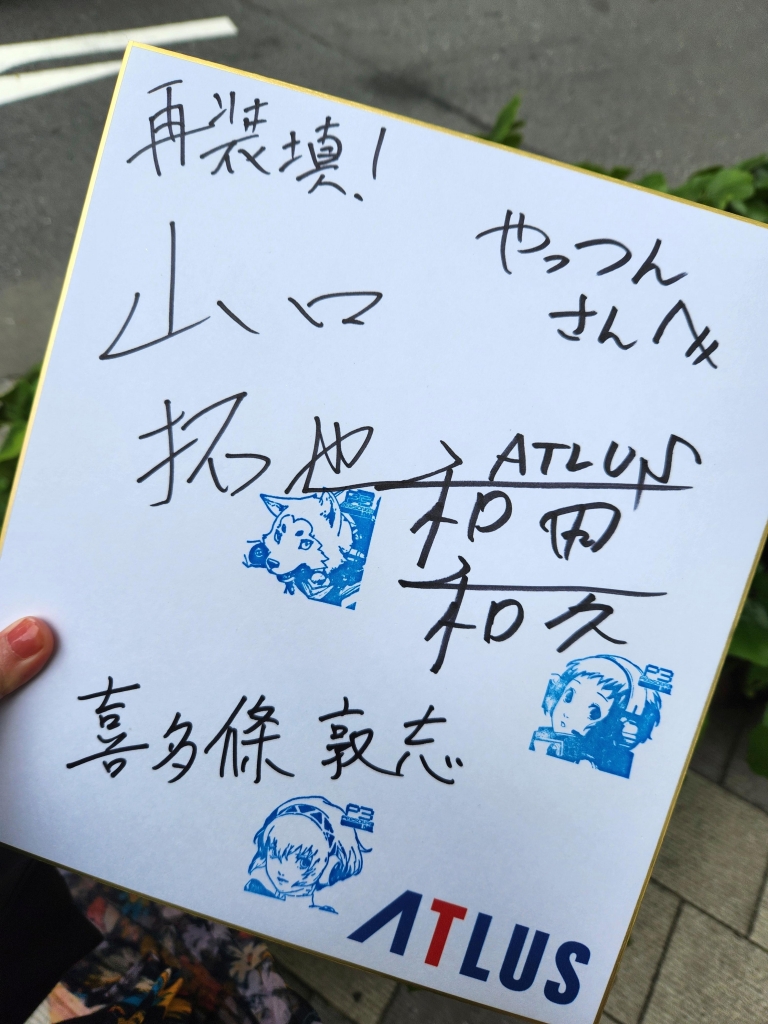 再装填!
やっつん
さんへ
山口
拓也
ATLUS
和田
和久
P3
喜多條 敦志
P3
ATLUS